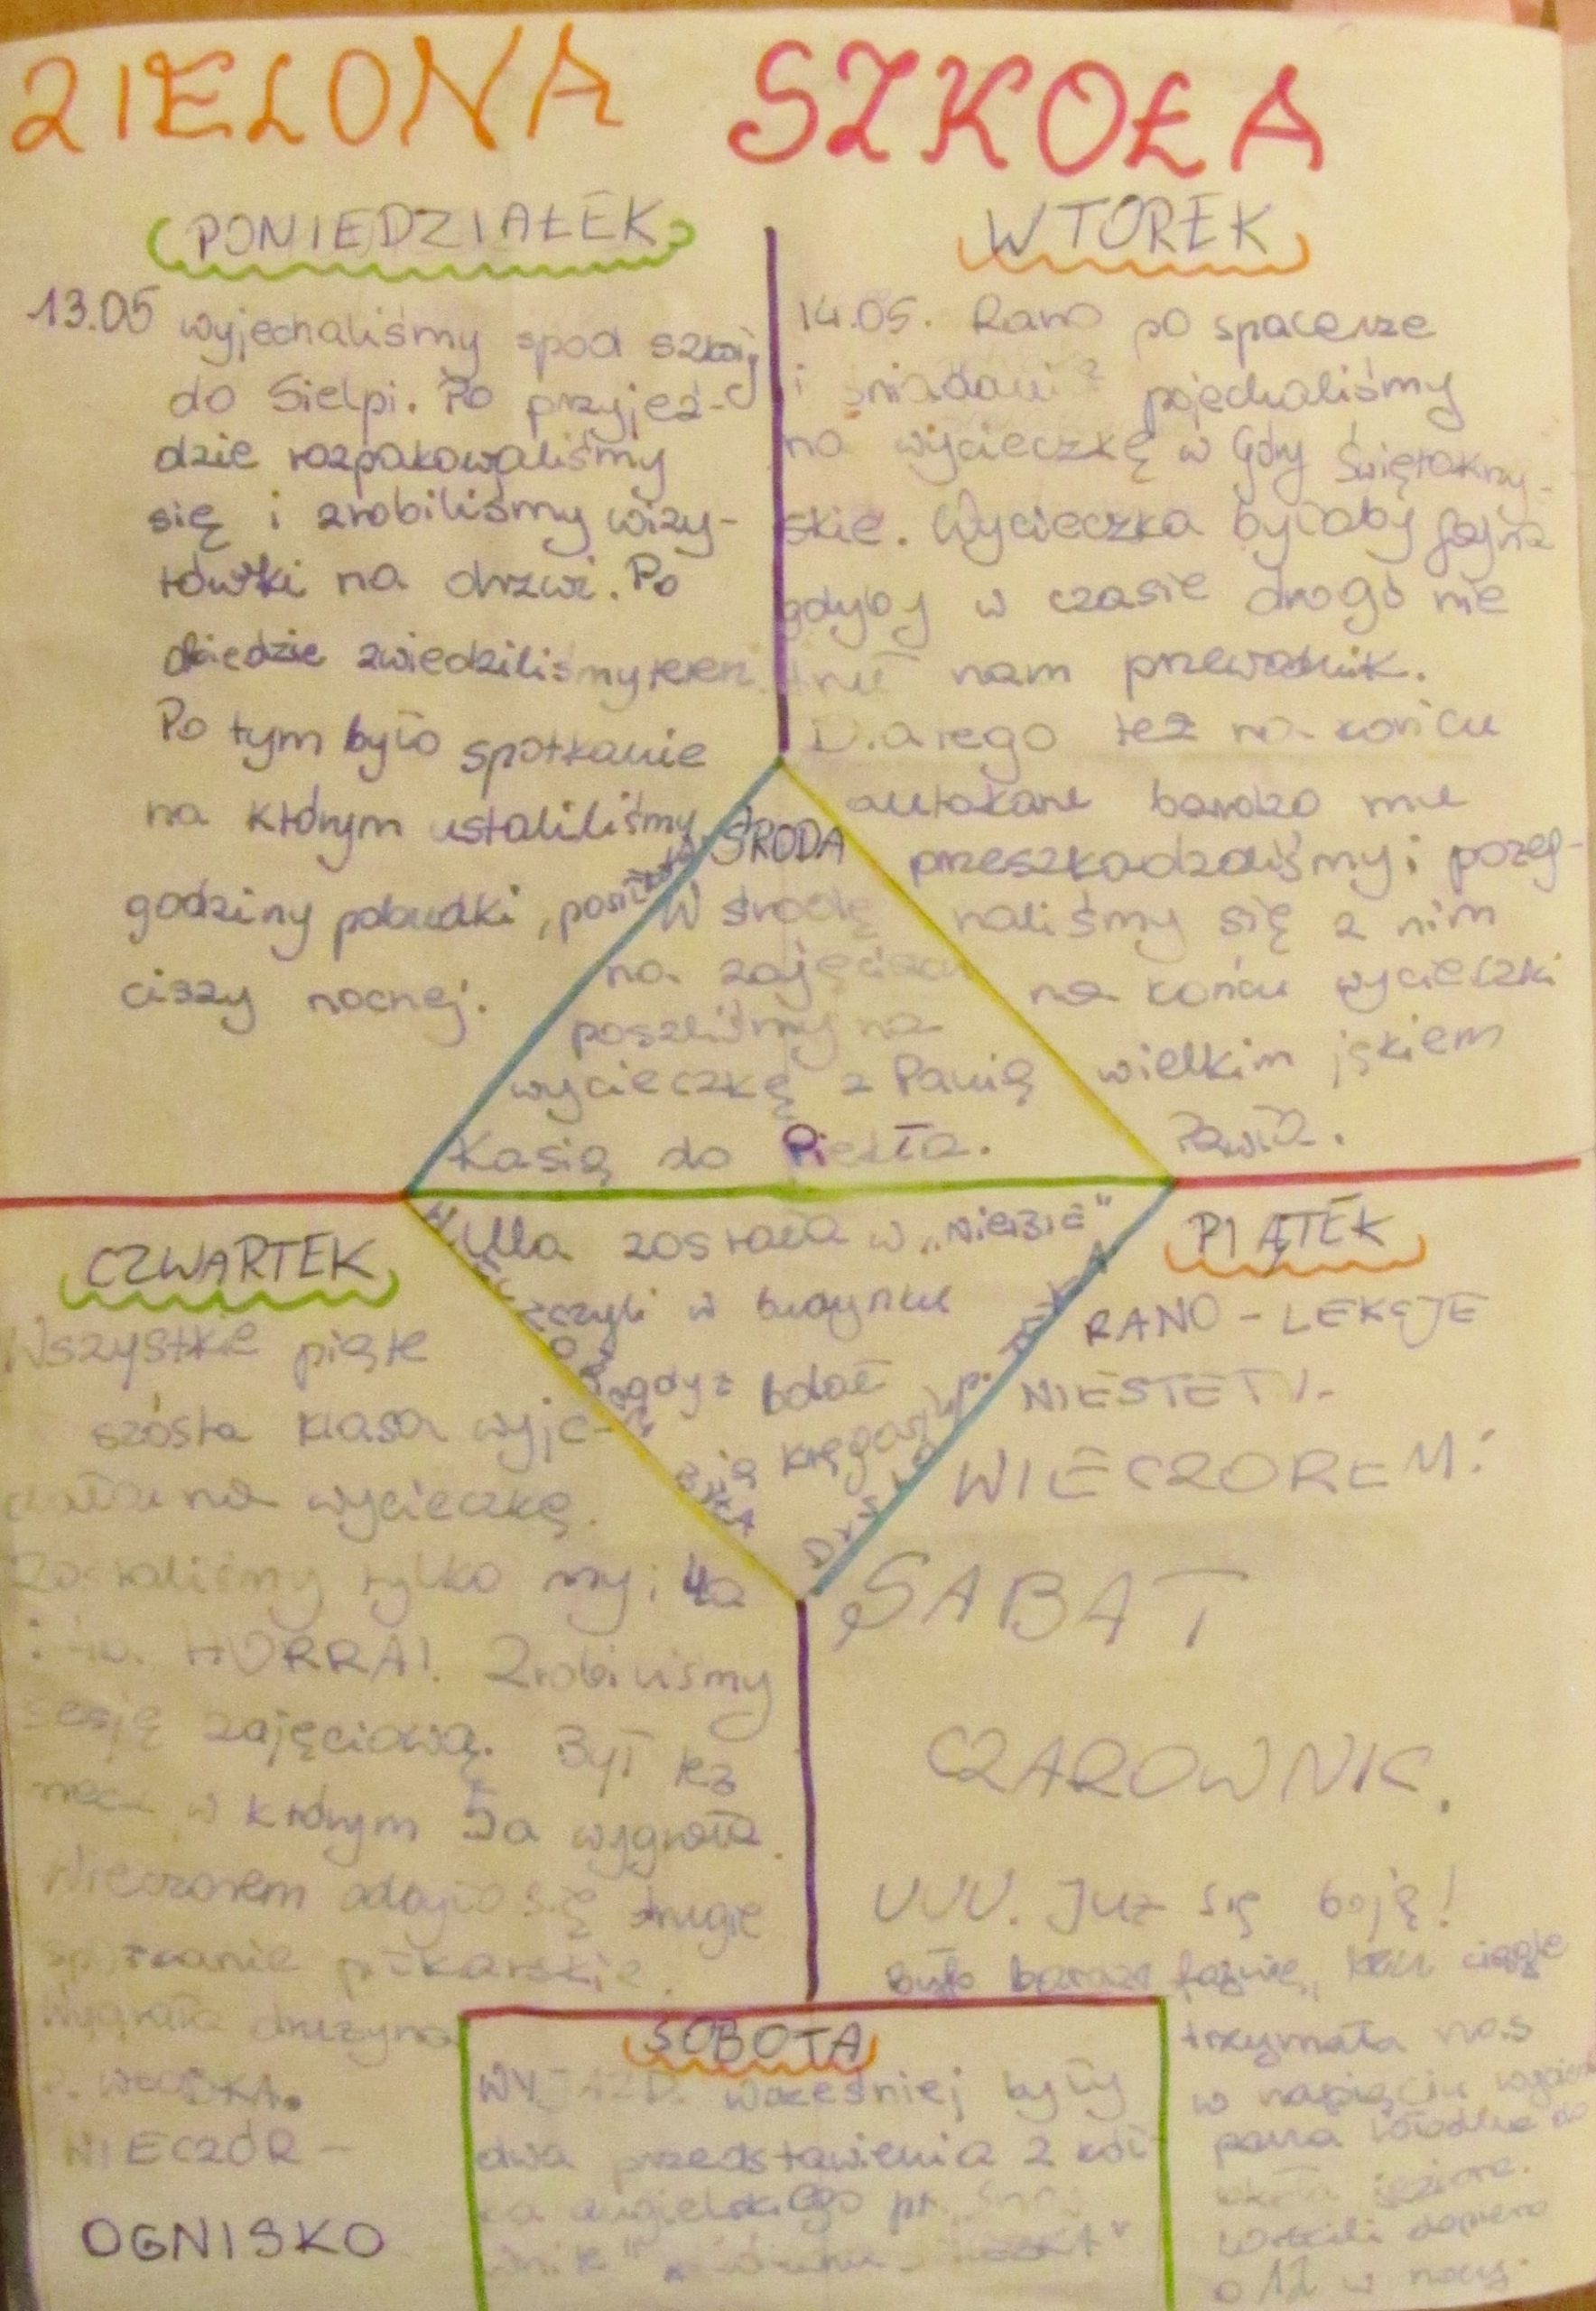 ZIELONA SZKOŁA
PONIEDZIAŁEK
13.05 wyjechaliśmy spod szkoły
do Sielpi. Po przyjeź-
dzie rozpakowaliśmy
się i zrobiliśmy wizy-
tówki na drzwi. Po
obiedzie zwiedziliśmy teren.
Po tym było spotkanie
na którym ustaliliśmy
godziny pobudki, posiłków
ciszy nocnej.
WTOREK
14.05. Rano po spacerze
i śniadaniu pojechaliśmy
na wycieczkę w Góry Świętokrzy-
skie. Wycieczka byłaby fajna
gdyby w czasie drogi nie
truł nam przewodnik.
Dlatego też na końcu
autokaru bardzo mu
przeszkadzaliśmy i pożeg-
naliśmy się z nim
na końcu wycieczki
wielkim jękiem
ŚRODA
W środę
na zajęciach
poszliśmy na
wycieczkę z Panią
Kasią do Piekła.
Ulla została w „niebie"
czyli w budynku
gdyż bolał
ją kręgosłup.
BYŁA
DYSKOTEKA
CZWARTEK
Wszystkie piąte
szósta klasa wyje-
chała na wycieczkę.
Zostaliśmy tylko my i 4a
HURRA! Zrobiliśmy
sesję zajęciową. Był też
mecz w którym 5a wygrała.
Wieczorem odbyło się drugie
spotkanie piłkarskie.
Wygrała drużyna
WIECZÓR -
OGNISKO
PIĄTEK
RANO - LEKCJE
NIESTETY.
WIECZOREM:
SABAT
CZAROWNIC.
UUU. Już się boję!
Było bardzo fajnie, ciągle
trzymała nas
w napięciu
pana do
jeziora.
Wrócili dopiero
o 12 w nocy.
SOBOTA
WYJAZD. Wcześniej były
dwa przedstawienia z kół-
ka angielskiego pt. „Snow